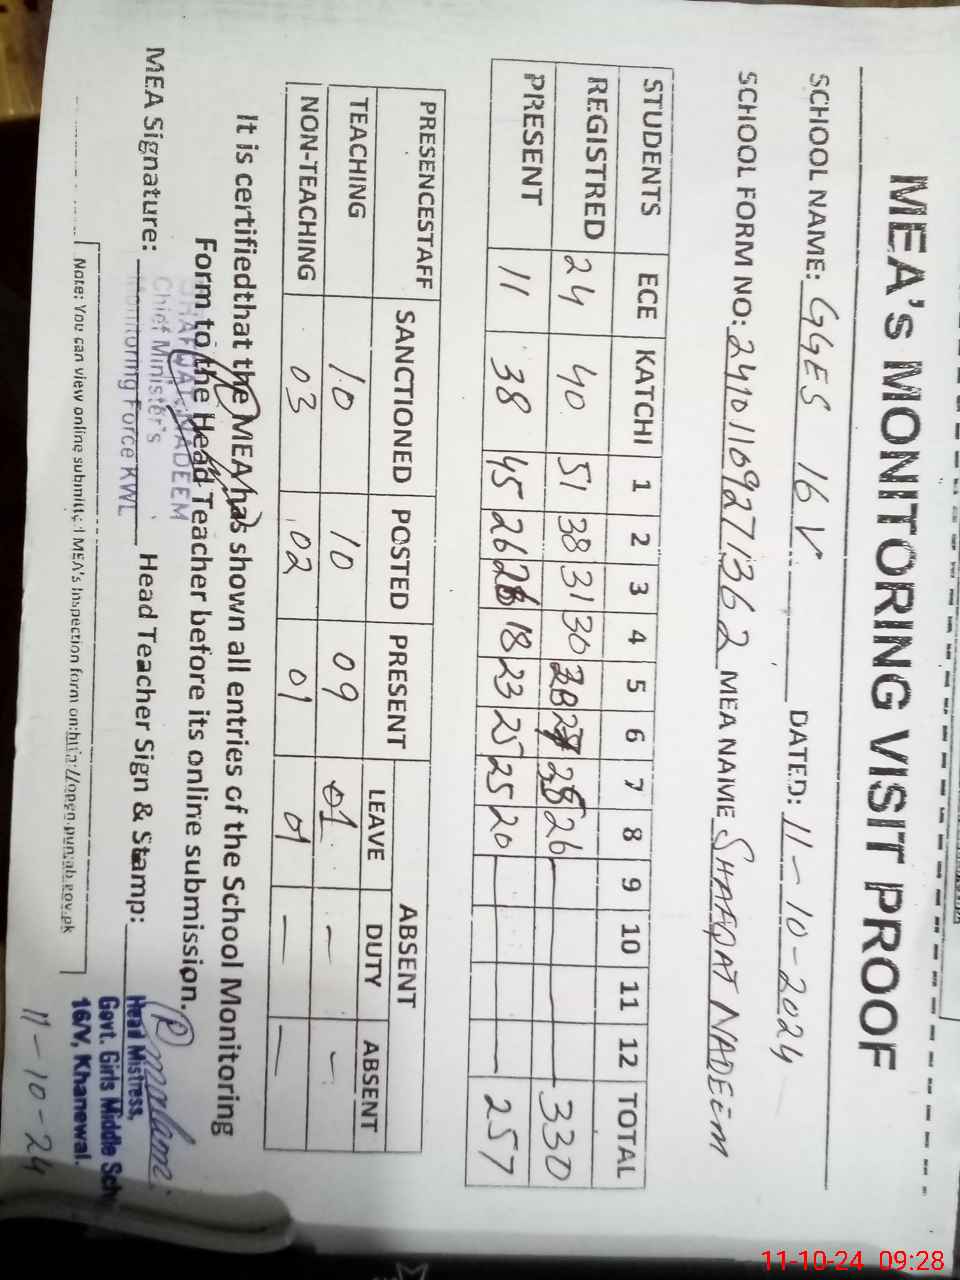 MEA's MONITORING VISIT PROOF
SCHOOL NAME: GGES 16 V DATED: 11-10-2024
SCHOOL FORM NO: MEA NAME SHAFQAT NADEEM
STUDENTS ECE KATCHI 1 2 3 4 5 6 7 8 9 10 11 12 TOTAL
REGISTRED 24 40 51 38 31 30 26 — — 330
PRESENT 11 38 45 26 18 23 25 25 20 — — 257
PRESENCESTAFF SANCTIONED POSTED PRESENT ABSENT
LEAVE DUTY ABSENT
TEACHING 10 10 09 01 — —
NON-TEACHING 03 02 01 01 — —
It is certifiedthat the MEA has shown all entries of the School Monitoring
Form to the Head Teacher before its online submission.
SHAFQAT NADEEM
Chief Minister's
Monitoring Force KWL
MEA Signature: Head Teacher Sign & Stamp:
Head Mistress,
Govt. Girls Middle Sch
16/V, Khanewal.
11-10-24
Note: You can view online submitted MEA's Inspection form on:http://open.punjab.gov.pk
11-10-24 09:28